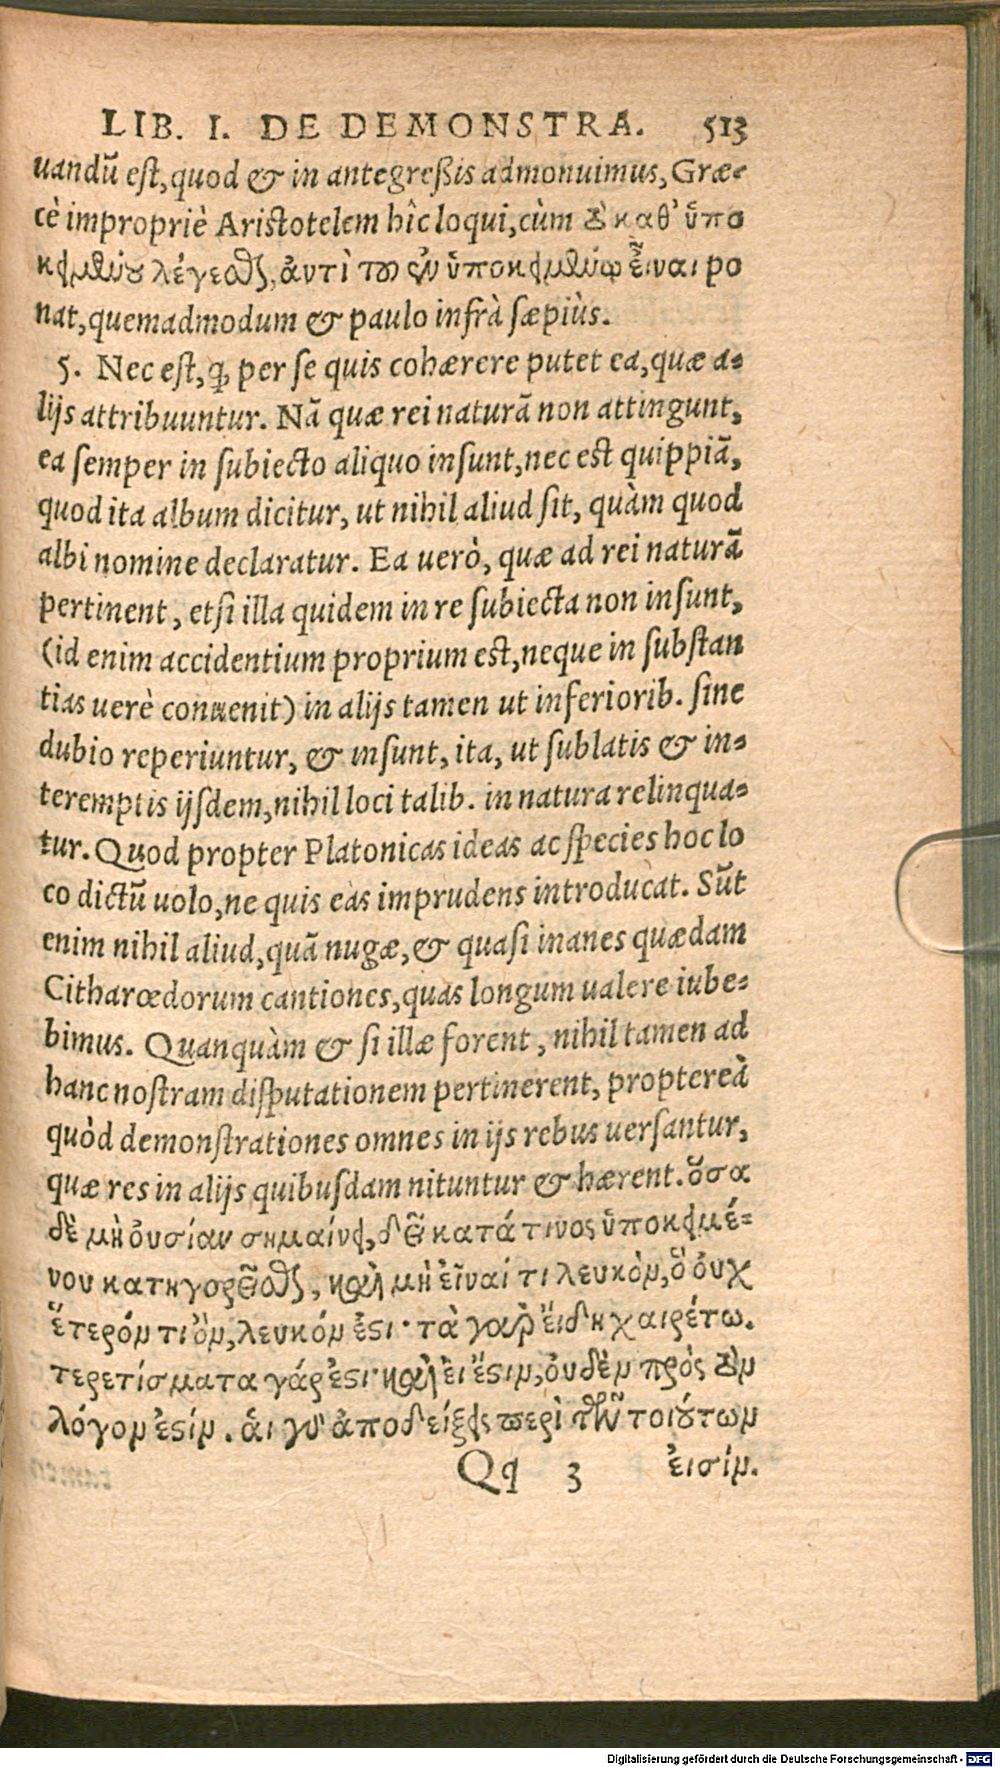 LIB. I. DE DEMONSTRA. 513
uandũ est, quod & in antegreßis admonuimus, Græ-
cè impropriè Aristotelem hîc loqui, cùm ȣ̓ καθ᾽ ὑπο
κειμένȣ λέγεσθαι, ἀντὶ τοῦ ἐν ὑποκειμένῳ εἶναι po
nat, quemadmodum & paulo infrà sæpiùs.
5. Nec est, ꝙ per se quis cohærere putet ea, quæ a-
lijs attribuuntur. Nã quæ rei naturã non attingunt,
ea semper in subiecto aliquo insunt, nec est quippiã,
quod ita album dicitur, ut nihil aliud sit, quàm quod
albi nomine declaratur. Ea uerò, quæ ad rei naturã
pertinent, etsi illa quidem in re subiecta non insunt,
(id enim accidentium proprium est, neque in substan
tias uerè conuenit) in alijs tamen ut inferiorib. sine
dubio reperiuntur, & insunt, ita, ut sublatis & in-
teremptis ijsdem, nihil loci talib. in natura relinqua-
tur. Quod propter Platonicas ideas ac species hoc lo
co dictũ uolo, ne quis eas imprudens introducat. Sũt
enim nihil aliud, quã nugæ, & quasi inanes quædam
Citharœdorum cantiones, quas longum ualere iube-
bimus. Quanquàm & si illæ forent, nihil tamen ad
hanc nostram disputationem pertinerent, proptereà
quòd demonstrationes omnes in ijs rebus uersantur,
quæ res in alijs quibusdam nituntur & hærent. ὅσα
δὲ μὴ ὀυσίαν σημαίνει, δεῖ κατά τινος ὑποκειμέ-
νου κατηγορεῖσθαι, καὶ μὴ εἶναί τι λευκὸν, ὃ ὀυχ
ἕτερόν τι ὂν, λευκόν ἐστι· τὰ γὰρ ἔιδη χαιρέτω.
τερετίσματα γάρ ἐστι· καὶ ἐι ἔστιν, ὀυδὲν πρὸς τὸν
λόγον ἐστίν. ἁι γὰρ ἀποδείξεις περὶ τῶν τοιȣ́των
Qq 3 ἐισίν.
Digitalisierung gefördert durch die Deutsche Forschungsgemeinschaft - DFG